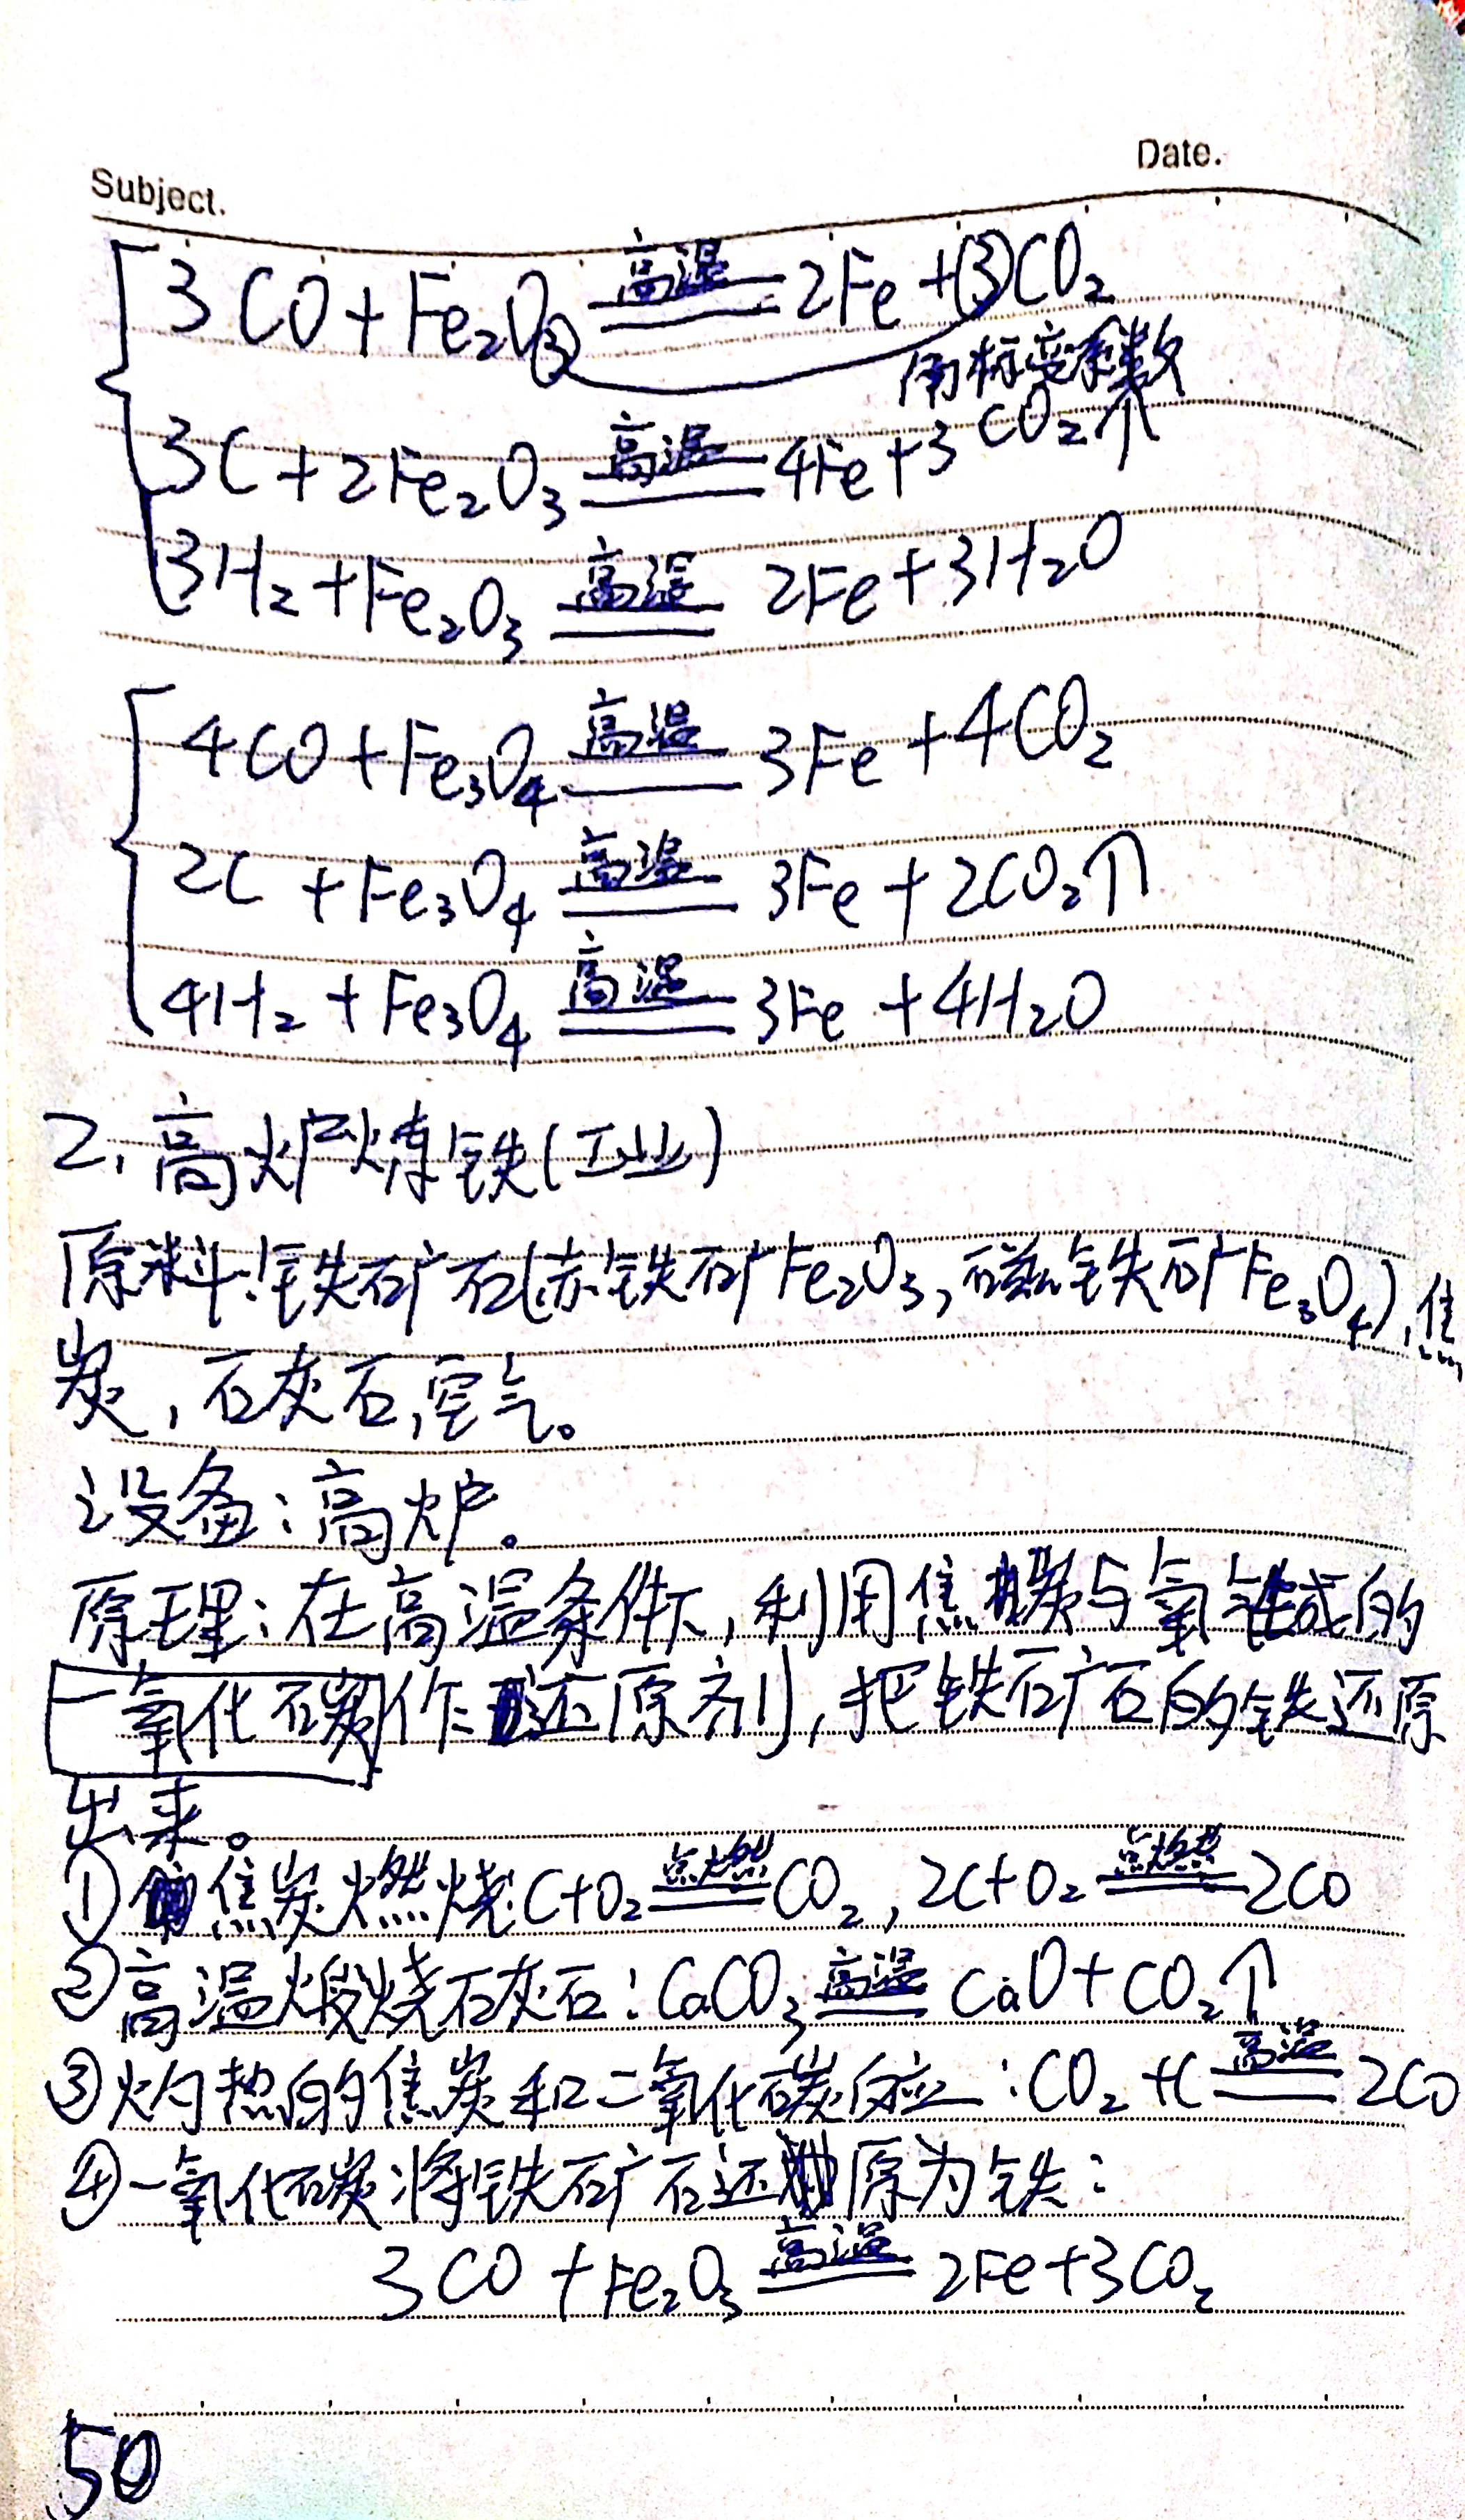 Subject.
Date.
3CO+Fe₂O₃ 高温 2Fe+3CO₂
角标变系数
3C+2Fe₂O₃ 高温 4Fe+3CO₂↑
3H₂+Fe₂O₃ 高温 2Fe+3H₂O
4CO+Fe₃O₄ 高温 3Fe+4CO₂
2C+Fe₃O₄ 高温 3Fe+2CO₂↑
4H₂+Fe₃O₄ 高温 3Fe+4H₂O
2、高炉炼铁(工业)
原料:铁矿石(赤铁矿Fe₂O₃,磁铁矿Fe₃O₄),焦
炭,石灰石,空气。
设备:高炉。
原理:在高温条件下,利用焦炭与氧气生成的
一氧化碳作还原剂,把铁矿石的铁还原
出来。
①焦炭燃烧:C+O₂ 点燃 CO₂,2C+O₂ 点燃 2CO
②高温煅烧石灰石:CaCO₃ 高温 CaO+CO₂↑
③灼热的焦炭和二氧化碳反应:CO₂+C 高温 2CO
④一氧化碳将铁矿石还原为铁:
3CO+Fe₂O₃ 高温 2Fe+3CO₂
50